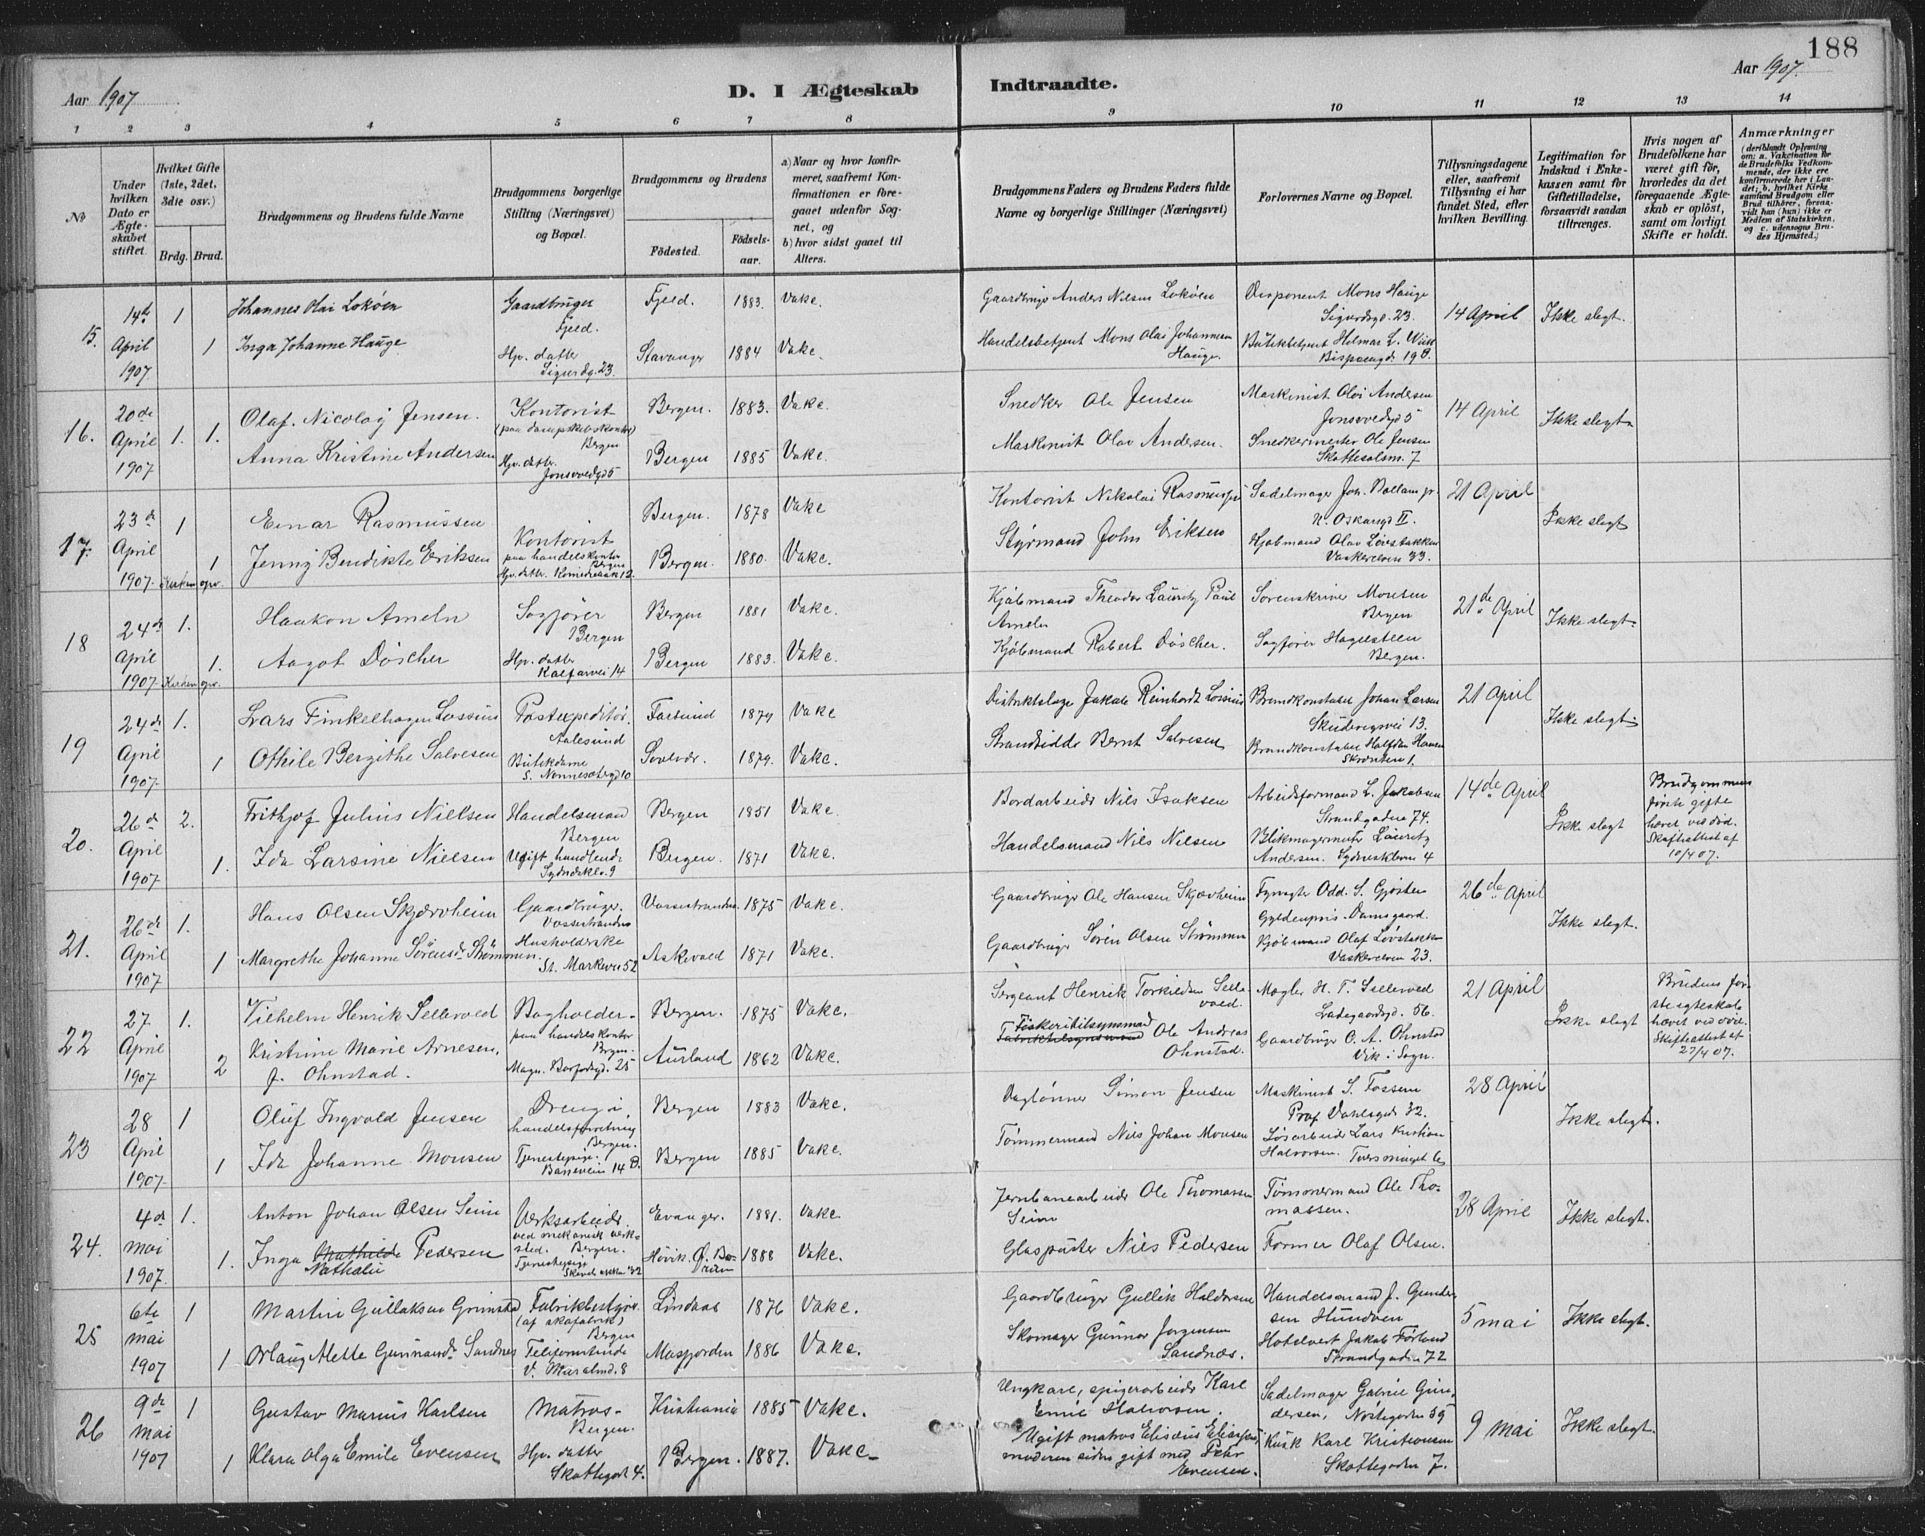 188
Aar 1907
D. I Ægteskab
Indtraadte.
Aar 1907.
1 2 3 4 5 6 7 8 9 10 11 12 13 14
№
Under hvilken Dato er Ægte- skabet stiftet.
Hvilket Gifte (1ste, 2det, 3die osv.)
Brdg. Brud.
Brudgommens og Brudens fulde Navne
Brudgommens borgerlige Stilling (Næringsvei) og Bopæl.
Brudgommens og Brudens
Födested.
Födsels- aar.
a) Naar og hvor konfir- meret, saafremt Kon- firmationen er fore- gaaet udenfor Sog- net, og
b) hvor sidst gaaet til Alters.
Brudgommens Faders og Brudens Faders fulde Navne og borgerlige Stillinger (Næringsvei)
Forlovernes Navne og Bopæl.
Tillysningsdagene eller, saafremt Tillysning ei har fundet Sted, efter hvilken Bevilling.
Legitimation for Indskud i Enke- kassen samt for Giftetilladelse, forsaavidt saadan tiltrænges.
Hvis nogen af Brudefolkene har været gift før, hvorledes da det foregaaende Ægte- skab er oplöst, samt om lovligt Skifte er holdt.
Anmærkninger (deriblandt Oplysning om: a. Vakcination for de Brudefolks Vedkom- mende, der ikke ere konfirmerede her i Lan- det; b. hvilket Kirke- samfund Brudgom eller Brud tilhører, forsaa- vidt han (hun) ikke er Medlem af Statskirken, og c. udensogns Bru- des Hjemsted.)
15. 14de April 1907 1 Johannes Olai Lokøen Gaardbruger Fjeld. Fjeld. 1883. Vake. Gaardbruger Anders Nilsen Lokøen Disponent Mons Hauge Sigurdsgd. 23. 14 April Ikke slegt.
1 Inga Johanne Hauge Hp. datter Sigurdsg. 23. Stavanger 1884 Vake. Handelsbetjent Mons Olai Johannesen Hauge. Butikbetjent Helmar L. Bispeengd. 19
16. 20de April 1907 1. 1. Olaf Nicolay Jensen. Kontorist (paa dampskibskontor) Bergen Bergen. 1883. Vake. Snedker Ole Jensen Maskinist Olai Andersen Jonsvedgd 5 14 April Ikke slegt.
Anna Kristine Andersen Hp. datter. Jonsvedgd 5 Bergen 1885 Vake. Maskinist Olav Andersen. Snedkermester Ole Jensen Skottesalsm. 7
17. 23de April 1907. 1 Einar Rasmussen Kontorist paa handelskontor Bergen Bergen. 1878 Vake Kontorist Nikolai Rasmussen Sadelmager Joh. N. Oskarsgd II. 21 April Ikke slegt
1 Jenny Bendikte Eriksen Hp. datter. 12. Bergen. 1880. Vake. Styrmand John Eriksen Kjøbmand Olav Løvstakken Vaskerelven 23.
18 24de April 1907. 1. Haakon Ameln Sagfører Bergen Bergen 1881 Vake. Kjøbmand Theodor Lauritz Paul Ameln Sorenskriver Monsen Bergen 21de April Ikke slegt.
1. Aagot Döscher Hp. datter Kalfarvei 14 Bergen 1883. Vake. Kjøbmand Robert Döscher. Sagfører Hagelsteen Bergen.
19 24de April 1907. 1. Lars Finkelhagen Lossius Postexpeditør. Aalesund Farsund 1879 Vake Distriktslæge Jakob Reinhardt Lossius Brandkonstabel Johan Larsen Skuteviksvei 13. 21 April Ikke slegt.
1 Othile Bergithe Salvesen Butikdame S. Nonnesætergd 10 1879. Vake. Strandsidder Bernt Salvesen Brandkonstabel Halfdan Hansen Skrænten 1.
20. 26de April 1907 2. Frithjof Julius Nielsen Handelsmand Bergen Bergen 1851 Vake. Bordarbeider Nils Isaksen Arbeidsformand L. Jakobsen Strandgaden 74. 14de April Ikke slegt Brudgommens første gifte hævet ved død. Skifteattest af 10/4 07.
1. Ida Larsine Nielsen Ugift handlende Sydneskl. 9 Bergen. 1871 Vake. Handelsmand Nils Nilsen Blikmagermester Lauritz Andersen. Sydneskleven 4
21. 26de April 1907 1. Hans Olsen Skjærvheim Gaardbruger. Vossestranden Vossestranden. 1875 Vake. Gaardbruger Ole Hansen Skjævheim Odd. S. Gjøsten Gyldenpris Damsgaard. 26de April Ikke slegt.
1 Margrethe Johanne Sörensdr Strømmen. Husholderske St. Markevei 52 Askevold 1871 Vake. Gaardbruger Sören Olsen Strømmen Kjøbmand Olaf Løvstakken Vaskerelven 23.
22 27. April 1907 1. Vilhelm Henrik Sellevold Bogholder paa handelskontor Bergen. Bergen. 1875 Vake. Sergeant Henrik Torkildsen Selle- vold. Mægler H. T. Sellevold Ladegaardsgd. 56. 21 April Ikke slegt Brudens før- ste egteskab hævet ved død. Skifteattest af 27/4 07.
2 Kristine Marie Arnesen, f. Ohnstad. Magn. Barfodsgd. 25 Aurland 1862 Vake. Fiskeritilsynsmand Ole Andreas Ohnstad. Gaardbruger O. A. Ohnstad Vik i Sogn.
23 28 April 1907 1 Oluf Ingvald Jensen Dreng i handelsforretning Bergen. Bergen 1883 Vake. Daglønner Simon Jensen Maskinist S. Fossen Prof. Dahlsgd 32. 28 April Ikke slegt.
1 Ida Johanne Monsen Tjenestepige. 14 B. Bergen 1885 Vake. Tömmermand Nils Johan Monsen Løsarbeider Lars Kristian Halvorsen.
24. 4de mai 1907 1. Anton Johan Olsen Seim Verksarbeider. ved mekanisk verk- sted. Bergen. Evanger. 1881. Vake. Jernbanearbeider Ole Thomassen Seim Tömmermand Ole Tho- massen. 28 April Ikke slegt.
1. Inga Mathilde Nathalie Pedersen Tjenestepige 32 Høvik. Ö. Bæ- rum 1888 Vake. Glaspuster Nils Pedersen Former Olaf Olsen.
25 6te mai 1907 1 Martin Gullaksen Grimstad Fabrikbestyrer. (af skofabrik) Bergen Lindaas 1876 Vake. Gaardbruger Gullik Haldorsen Handelsmand J. Gunder- sen Hundven 5 mai Ikke slegt.
1 Orlaug Alette Gunnarsdr. Sandnes Telefonistinde V. Muralmd. 8 Masfjorden 1886 Vake. Skomager Gunnar Jørgensen Sandnæs. Hotelvert Jakob Førland Strandgaden 72
26 9de mai 1907 1 Gustav Marius Karlsen Matros- Bergen. Kristiania 1885 Vake. Ungkarl, spigerarbeider Karl Emil Halvorsen. Sadelmager Gabriel Gun- dersen, Nøstegaden 59 9 mai Ikke slegt.
1 Klara Olga Emile Evensen Hp. datter Skottegad. 4. Bergen. 1887. Vake. Ugift matros Elisæus Elisæsen, moderen siden gift med Peder Evensen. Kusk Karl Kristiansen Skottegaden 7.